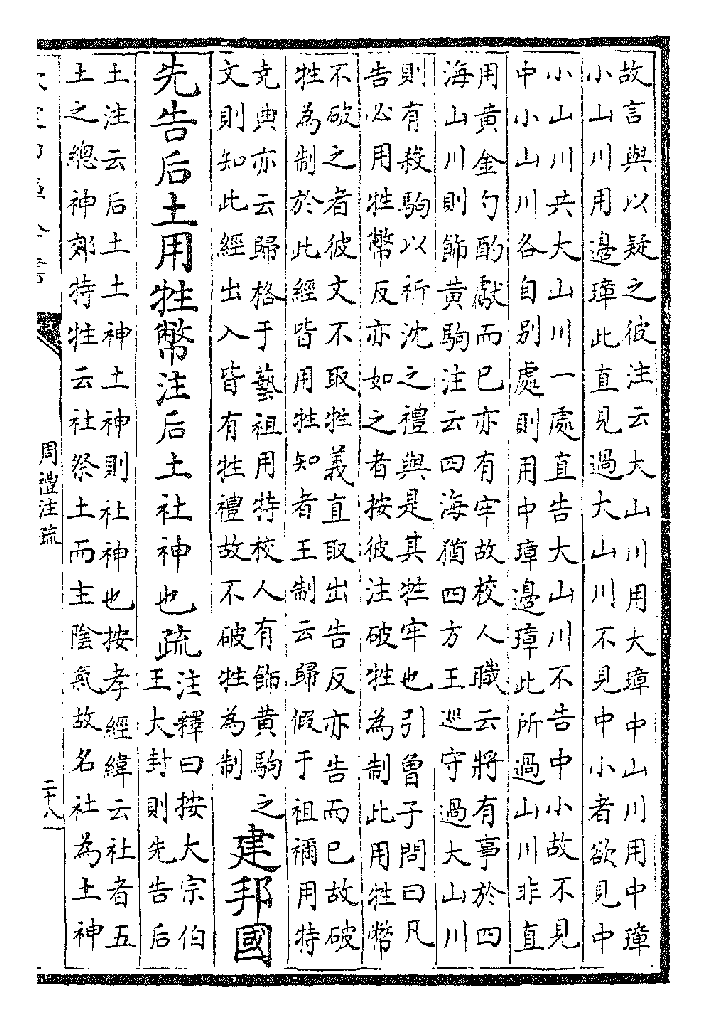 故言與以疑之彼注云大山川用大璋中山川用中璋
小山川用邊璋此直見過大山川不見中小者欲見中
小山川共大山川一處直告大山川不告中小故不見
中小山川各自别處則用中璋邊璋此所過山川非直
用黄金勺酌獻而已亦有牢故校人職云將有事於四
海山川則飾黄駒注云四海猶四方王巡守過大山川
則有殺駒以祈沈之禮與是其牲牢也引曾子問曰凡
告必用牲幣反亦如之者按彼注破牲為制此用牲幣
不破之者彼文不取牲義直取出告反亦告而已故破
牲為制於此經皆用牲知者王制云歸假于祖禰用特
堯典亦云歸格于藝祖用特校人有飾黄駒之
文則知此經出入皆有牲禮故不破牲為制
建邦國
先告后土用牲幣注后土社神也疏
注釋曰按大宗伯
王大封則先告后
土注云后土土神土神則社神也按孝經緯云社者五
土之總神郊特牲云社祭土而主隂氣故名社為土神
周禮注疏
二十八